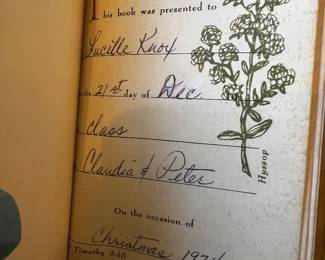 his book was presented to
Lucille Knox
the 21st day of Dec.
Class
Claudia & Peter
Hyssop
On the occasion of
Christmas
Timothy 3:16